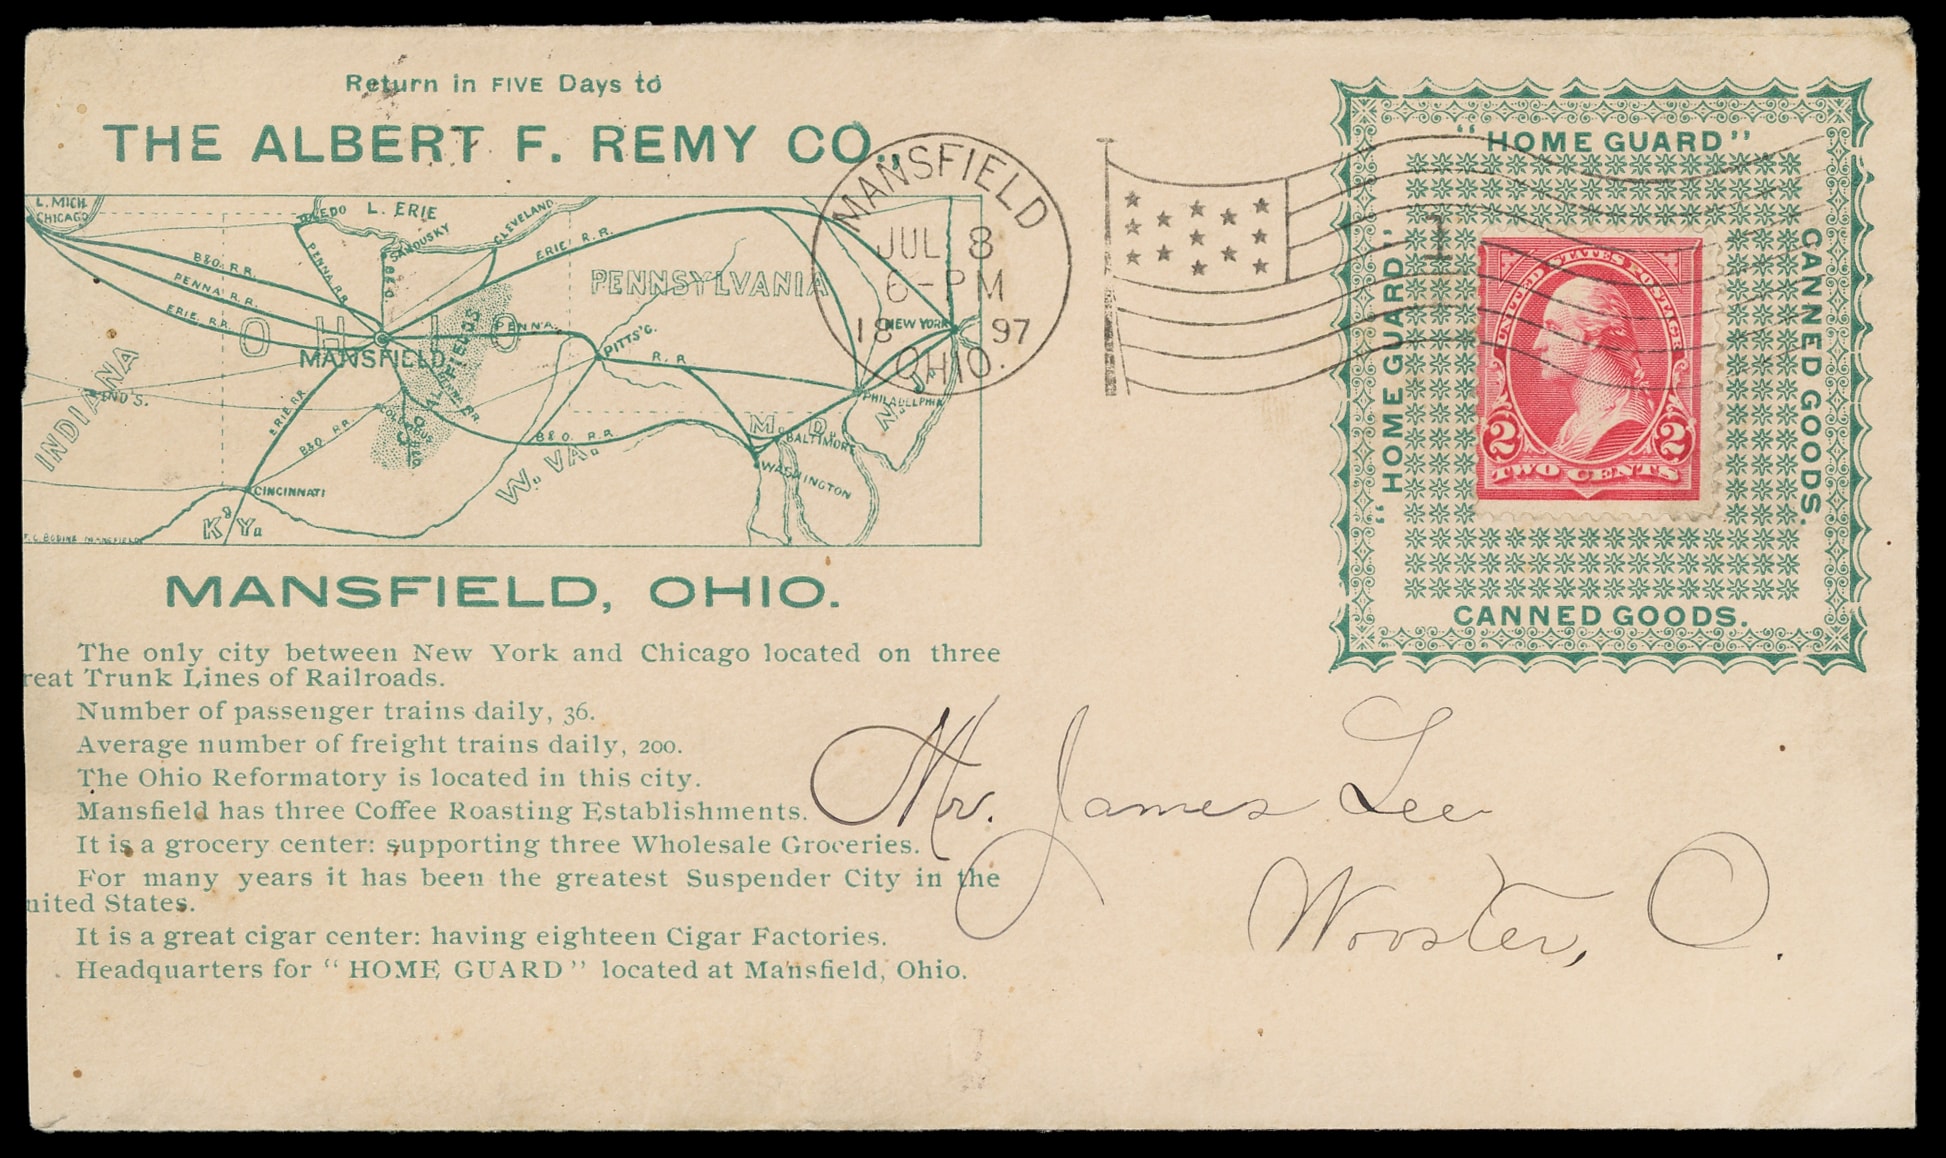 Return in FIVE Days to
THE ALBERT F. REMY CO.,
L. MICH.
CHICAGO
TOLEDO
L. ERIE
SANDUSKY
CLEVELAND
B&O. R.R.
PENNA. R.R.
ERIE. R.R.
PENNA. R.R.
B&O.
ERIE R.R.
PENNSYLVANIA
NEW YORK
OHIO
PENN'A.
PITTS'G.
R. R.
MANSFIELD.
COAL FIELDS
INDIANA
IND'S.
ERIE R.R.
B&O. R.R.
COLUMBUS
B&O. R.R.
W. VA.
M. D.
PHILADELPHIA
N. J.
BALTIMORE
WASHINGTON
CINCINNATI
K'Y.
F. C. BODINE MANSFIELD
MANSFIELD, OHIO.
The only city between New York and Chicago located on three
reat Trunk Lines of Railroads.
Number of passenger trains daily, 36.
Average number of freight trains daily, 200.
The Ohio Reformatory is located in this city.
Mansfield has three Coffee Roasting Establishments.
It is a grocery center: supporting three Wholesale Groceries.
For many years it has been the greatest Suspender City in the
nited States.
It is a great cigar center: having eighteen Cigar Factories.
Headquarters for "HOME GUARD" located at Mansfield, Ohio.
MANSFIELD
JUL 8
6-PM
1897
OHIO.
1
"HOME GUARD"
"HOME GUARD"
CANNED GOODS.
CANNED GOODS.
UNITED STATES POSTAGE
2 2
TWO CENTS
Mr. James Lee
Wooster, O.